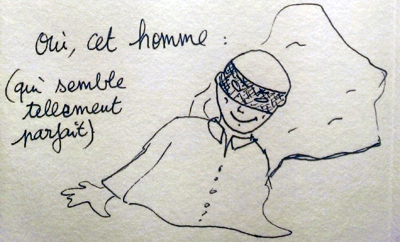 Oui, cet homme :
(qui semble
tellement
parfait)